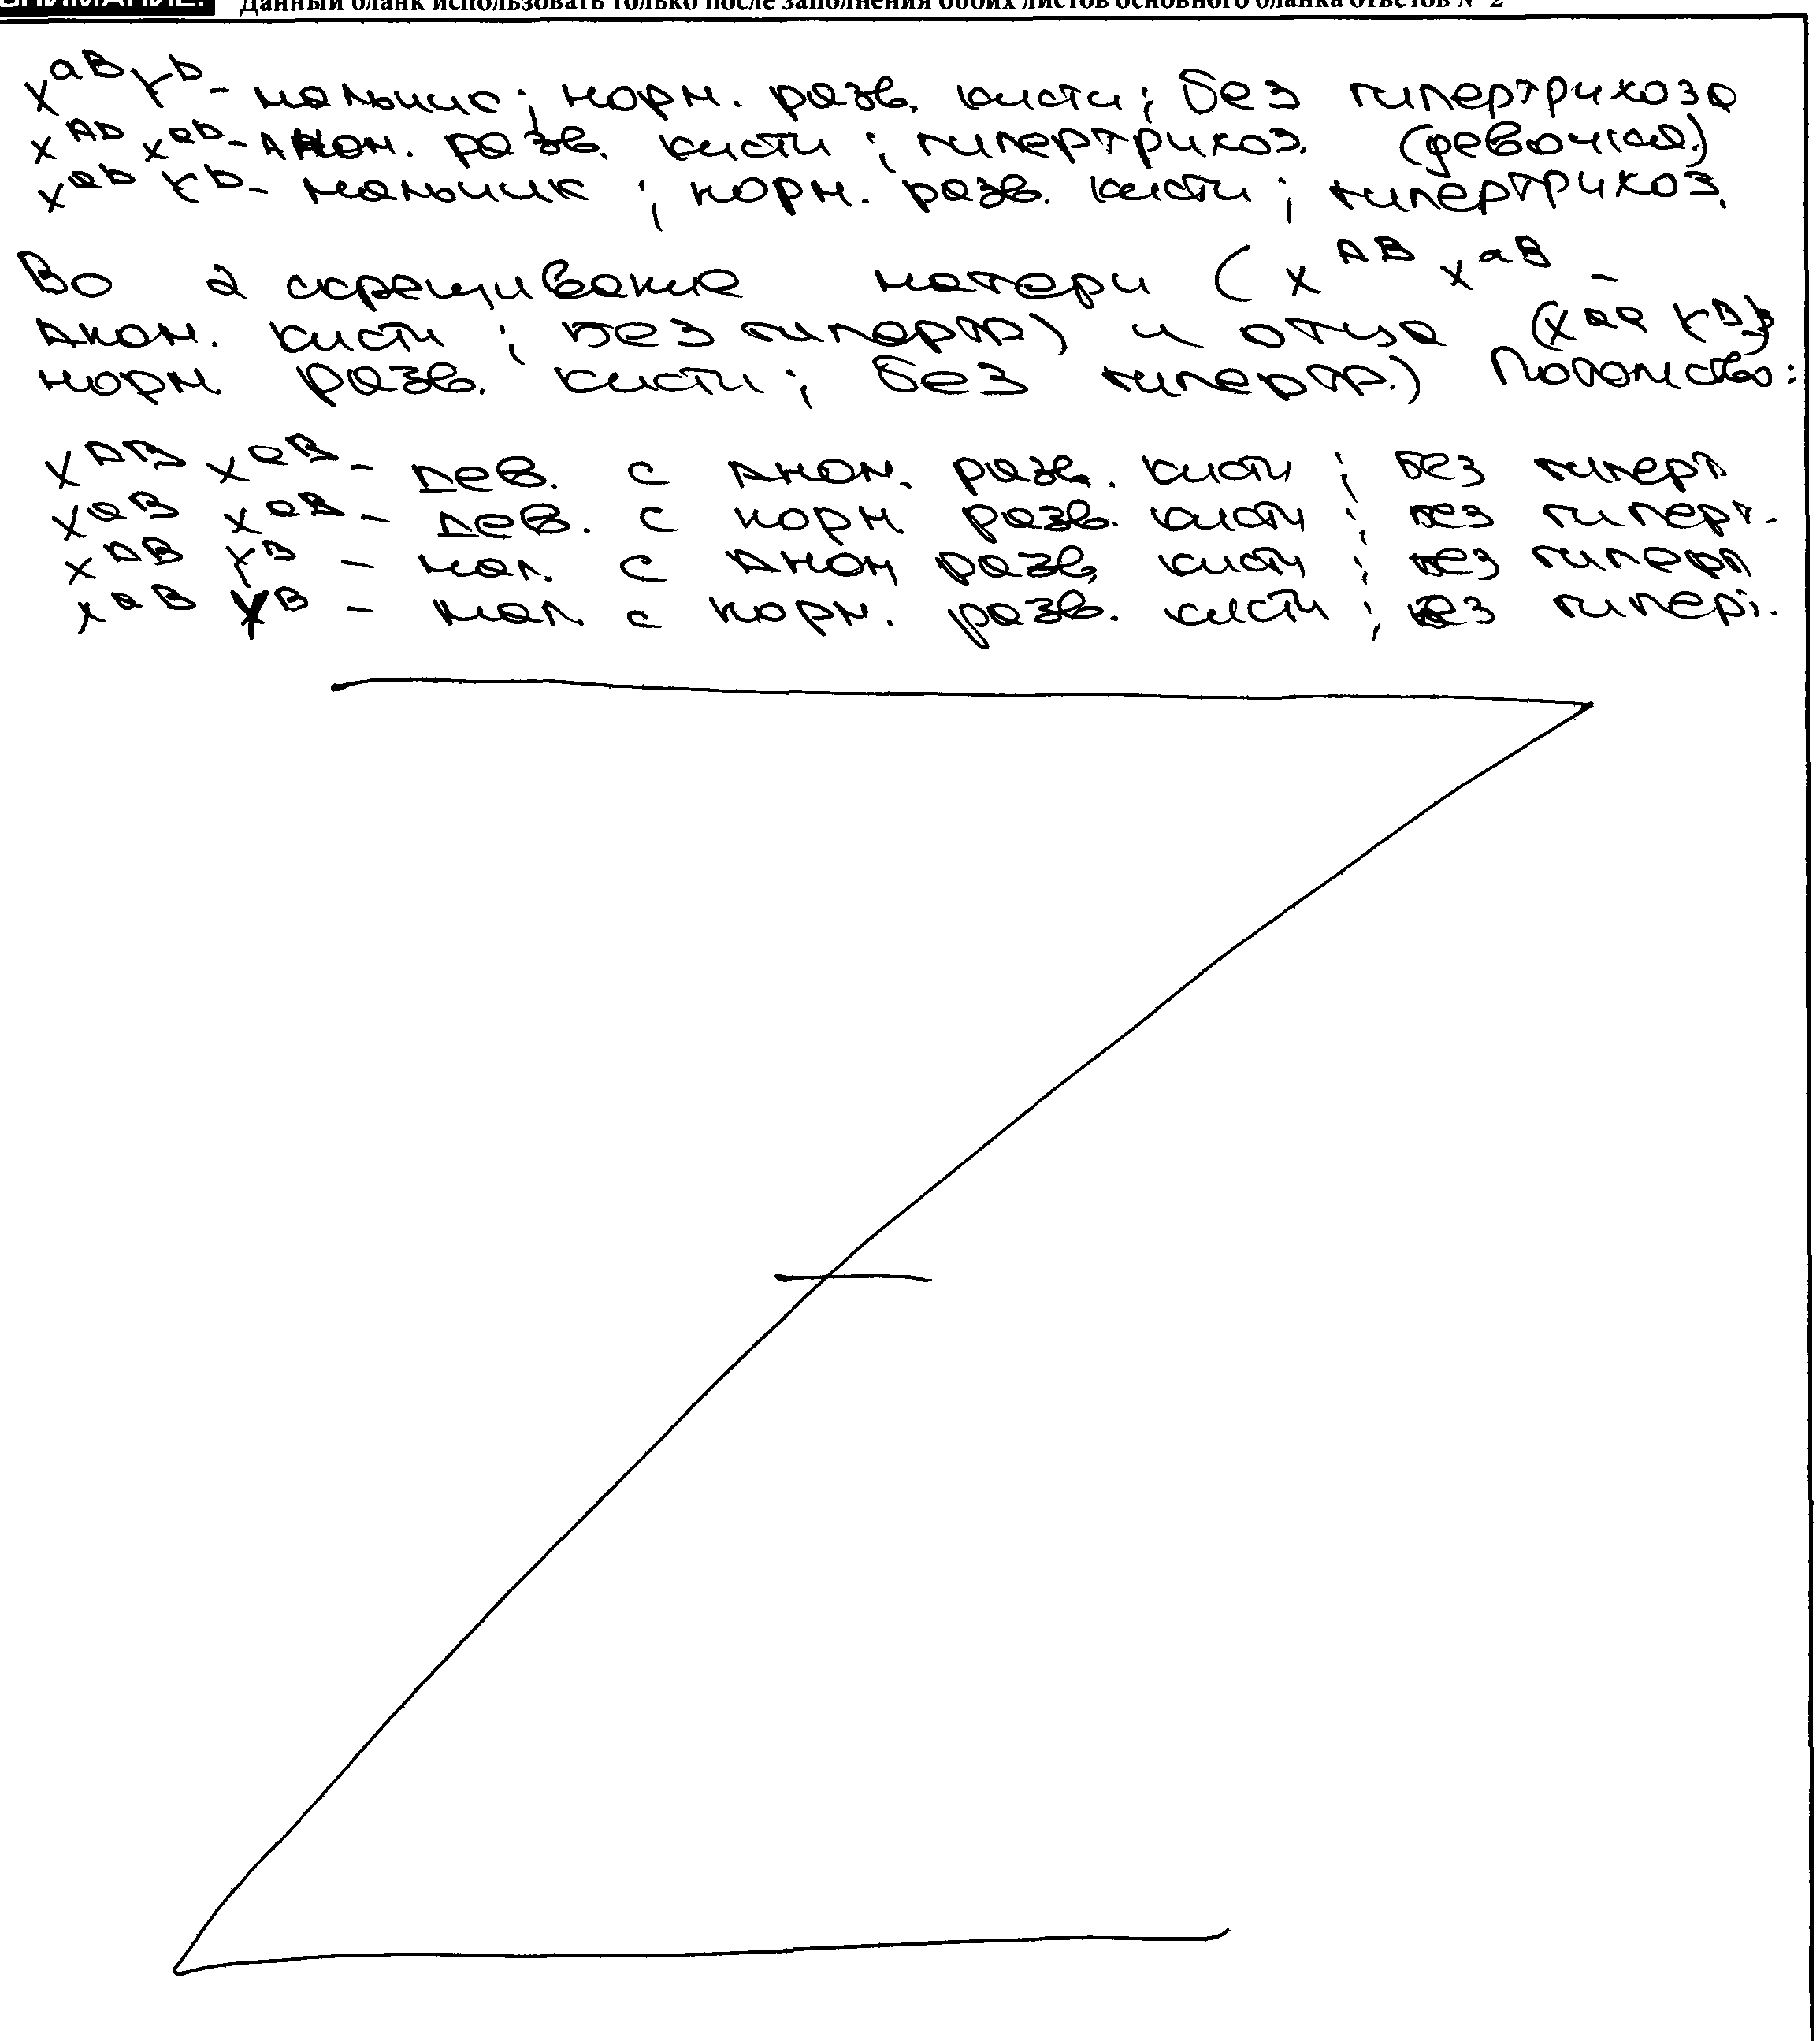 ВНИМАНИЕ! Данный бланк использовать только после заполнения обоих листов основного бланка ответов № 2
X^aB Y^b - мальчик; норм. разв. кисти; без гипертрихоза
X^Ab X^ab - Аном. разв. кисти; гипертрихоз. (девочка)
X^ab Y^b - мальчик; норм. разв. кисти; гипертрихоз.
Во 2 скрещивание матери (X^AB X^aB -
Аном. кисти; без гипертр) и отца (X Y^B;
норм разв. кисти; без гипертр.) Потомство:
X^AB X^aB - Дев. с Аном. разв. кисти; без гиперт
X^aB X^aB - Дев. с норм разв. кисти; без гиперт.
X^AB Y^B - мал. с Аном разв. кисти; без гиперт
X^aB Y^B - мал. с норм. разв. кисти; без гиперт.